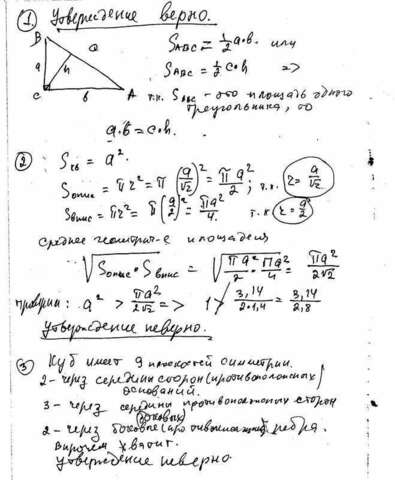 ① Утверждение верно.
B
a
h
C
b
A
S_ABC = 1/2 a·b. или
S_ABC = 1/2 c·h =>
т.к. S_ABC - это площадь одного
треугольника, то
a·b = c·h.
② S_кв = a².
S_опис = πr² = π(a/√2)² = πa²/2, т.к. r = a/√2
S_впис = πr² = π(a/2)² = πa²/4. т.к. r = a/2
среднее геометрич-е площадей
√(S_опис · S_впис) = √(πa²/2 · πa²/4) = πa²/2√2
проверим: a² > πa²/2√2 => 1 > 3,14/2·1,4 = 3,14/2,8
Утверждение неверно.
③ Куб имеет 9 плоскостей симметрии.
2 - через середины сторон (противоположных)
оснований.
3 - через середины противоположных сторон
(боковых)
2 - через боковые ребра.
впрочем хватит.
утверждение неверно.